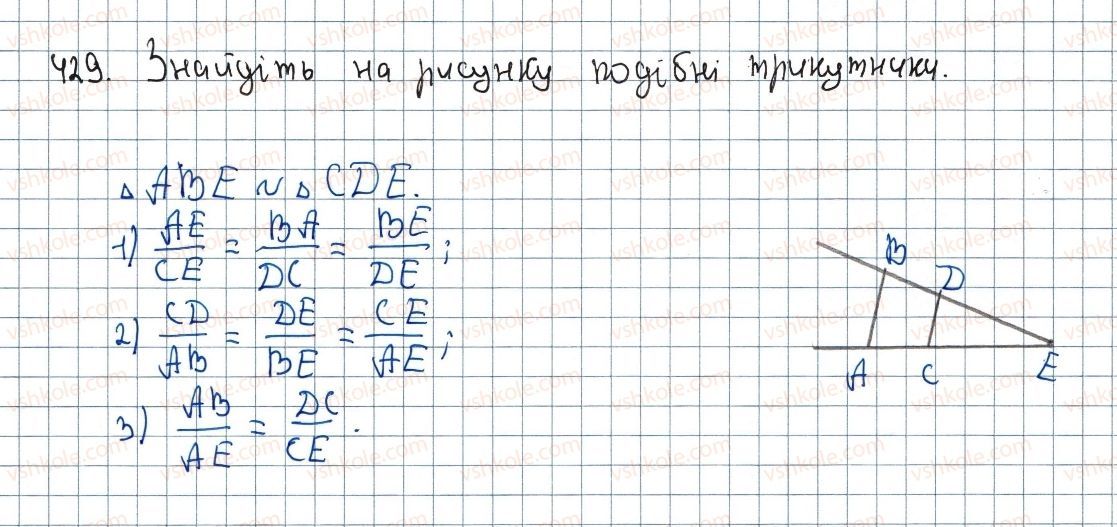 429. Знайдіть на рисунку подібні трикутники.
△ABE ~ △CDE.
1) AE/CE = BA/DC = BE/DE;
2) CD/AB = DE/BE = CE/AE;
3) AB/AE = DC/CE.
B
D
A C E